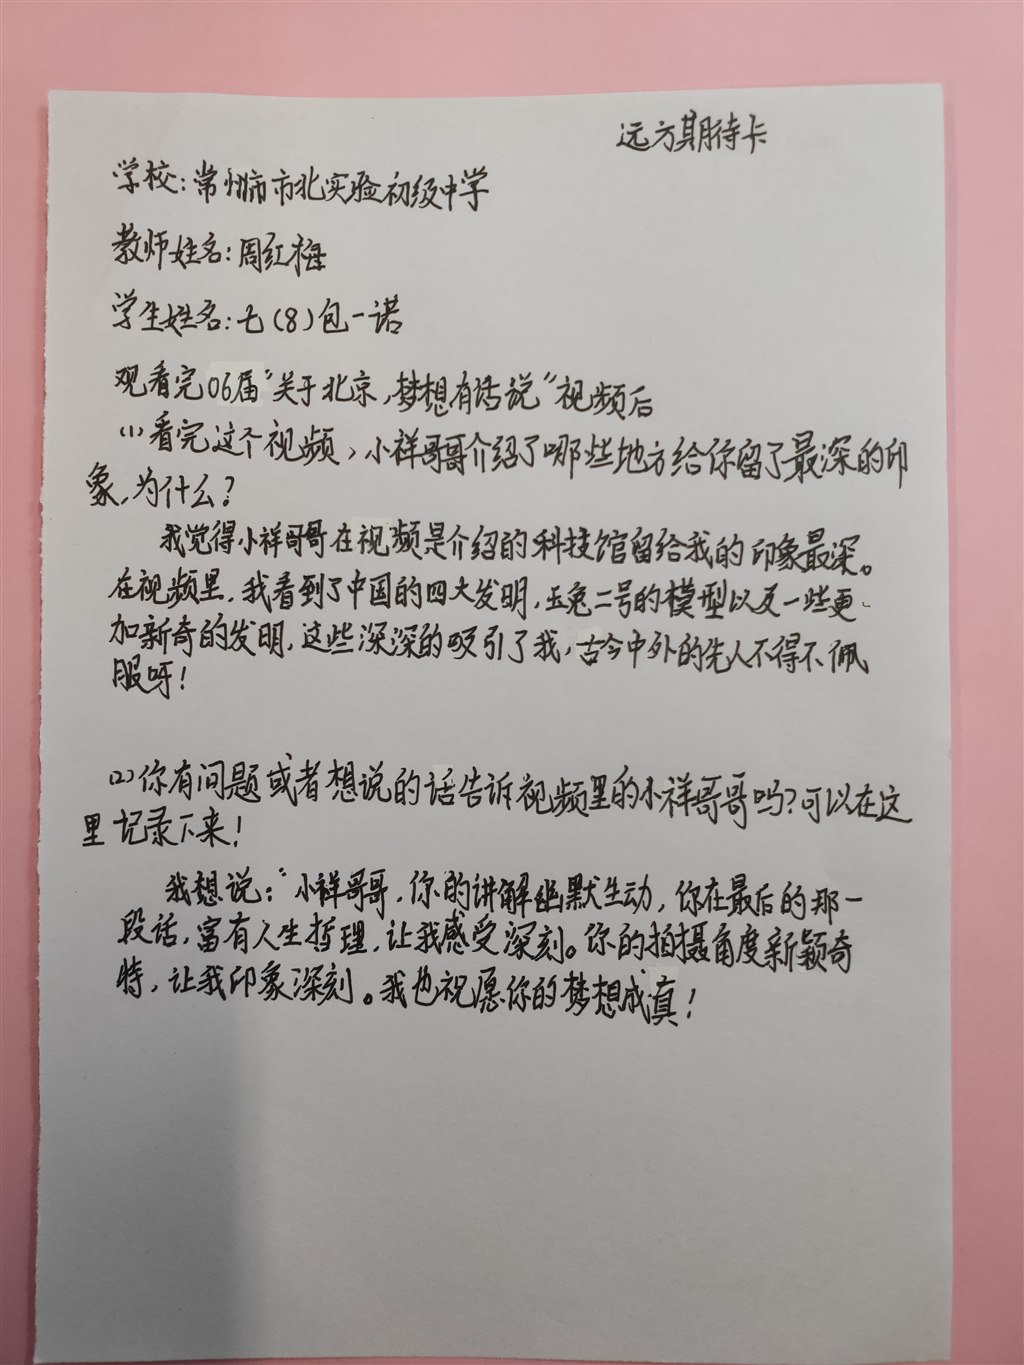 远方期待卡
学校:常州市市北实验初级中学
教师姓名:周红梅
学生姓名:七(8)包一诺
观看完06届“关于北京,梦想有话说”视频后
(1)看完这个视频,小祥哥哥介绍了哪些地方给你留了最深的印
象,为什么?
我觉得小祥哥哥在视频是介绍的科技馆留给我的印象最深。
在视频里,我看到了中国的四大发明,玉兔二号的模型以及一些更
加新奇的发明,这些深深的吸引了我,古今中外的先人不得不佩
服呀!
(2)你有问题或者想说的话告诉视频里的小祥哥哥吗?可以在这
里记录下来!
我想说:“小祥哥哥,你的讲解幽默生动,你在最后的那一
段话,富有人生哲理,让我感受深刻。你的拍摄角度新颖奇
特,让我印象深刻。我也祝愿你的梦想成真!